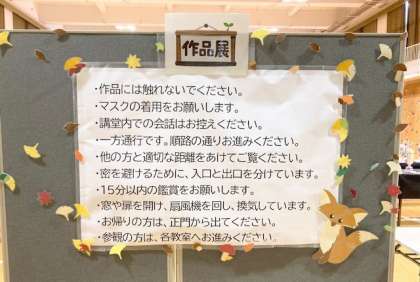 作品展
・作品には触れないでください。
・マスクの着用をお願いします。
・講堂内での会話はお控えください。
・一方通行です。順路の通りお進みください。
・他の方と適切な距離をあけてご覧ください。
・密を避けるために、入口と出口を分けています。
・15分以内の鑑賞をお願いします。
・窓や扉を開け、扇風機を回し、換気しています。
・お帰りの方は、正門から出てください。
・参観の方は、各教室へお進みください。